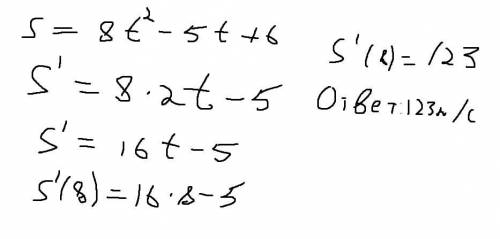 S = 8t² - 5t + 6
S' = 8 · 2t - 5
S' = 16t - 5
S'(8) = 16 · 8 - 5
S'(8) = 123
Ответ: 123м/с